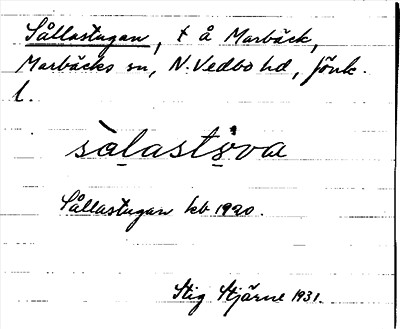 Sållastugan, t å Marbäck,
Marbäcks sn, N. Vedbo hd, Jönk.
l.
sàlastòva
Sållastugan kb 1920.
Stig Stjärne 1931.